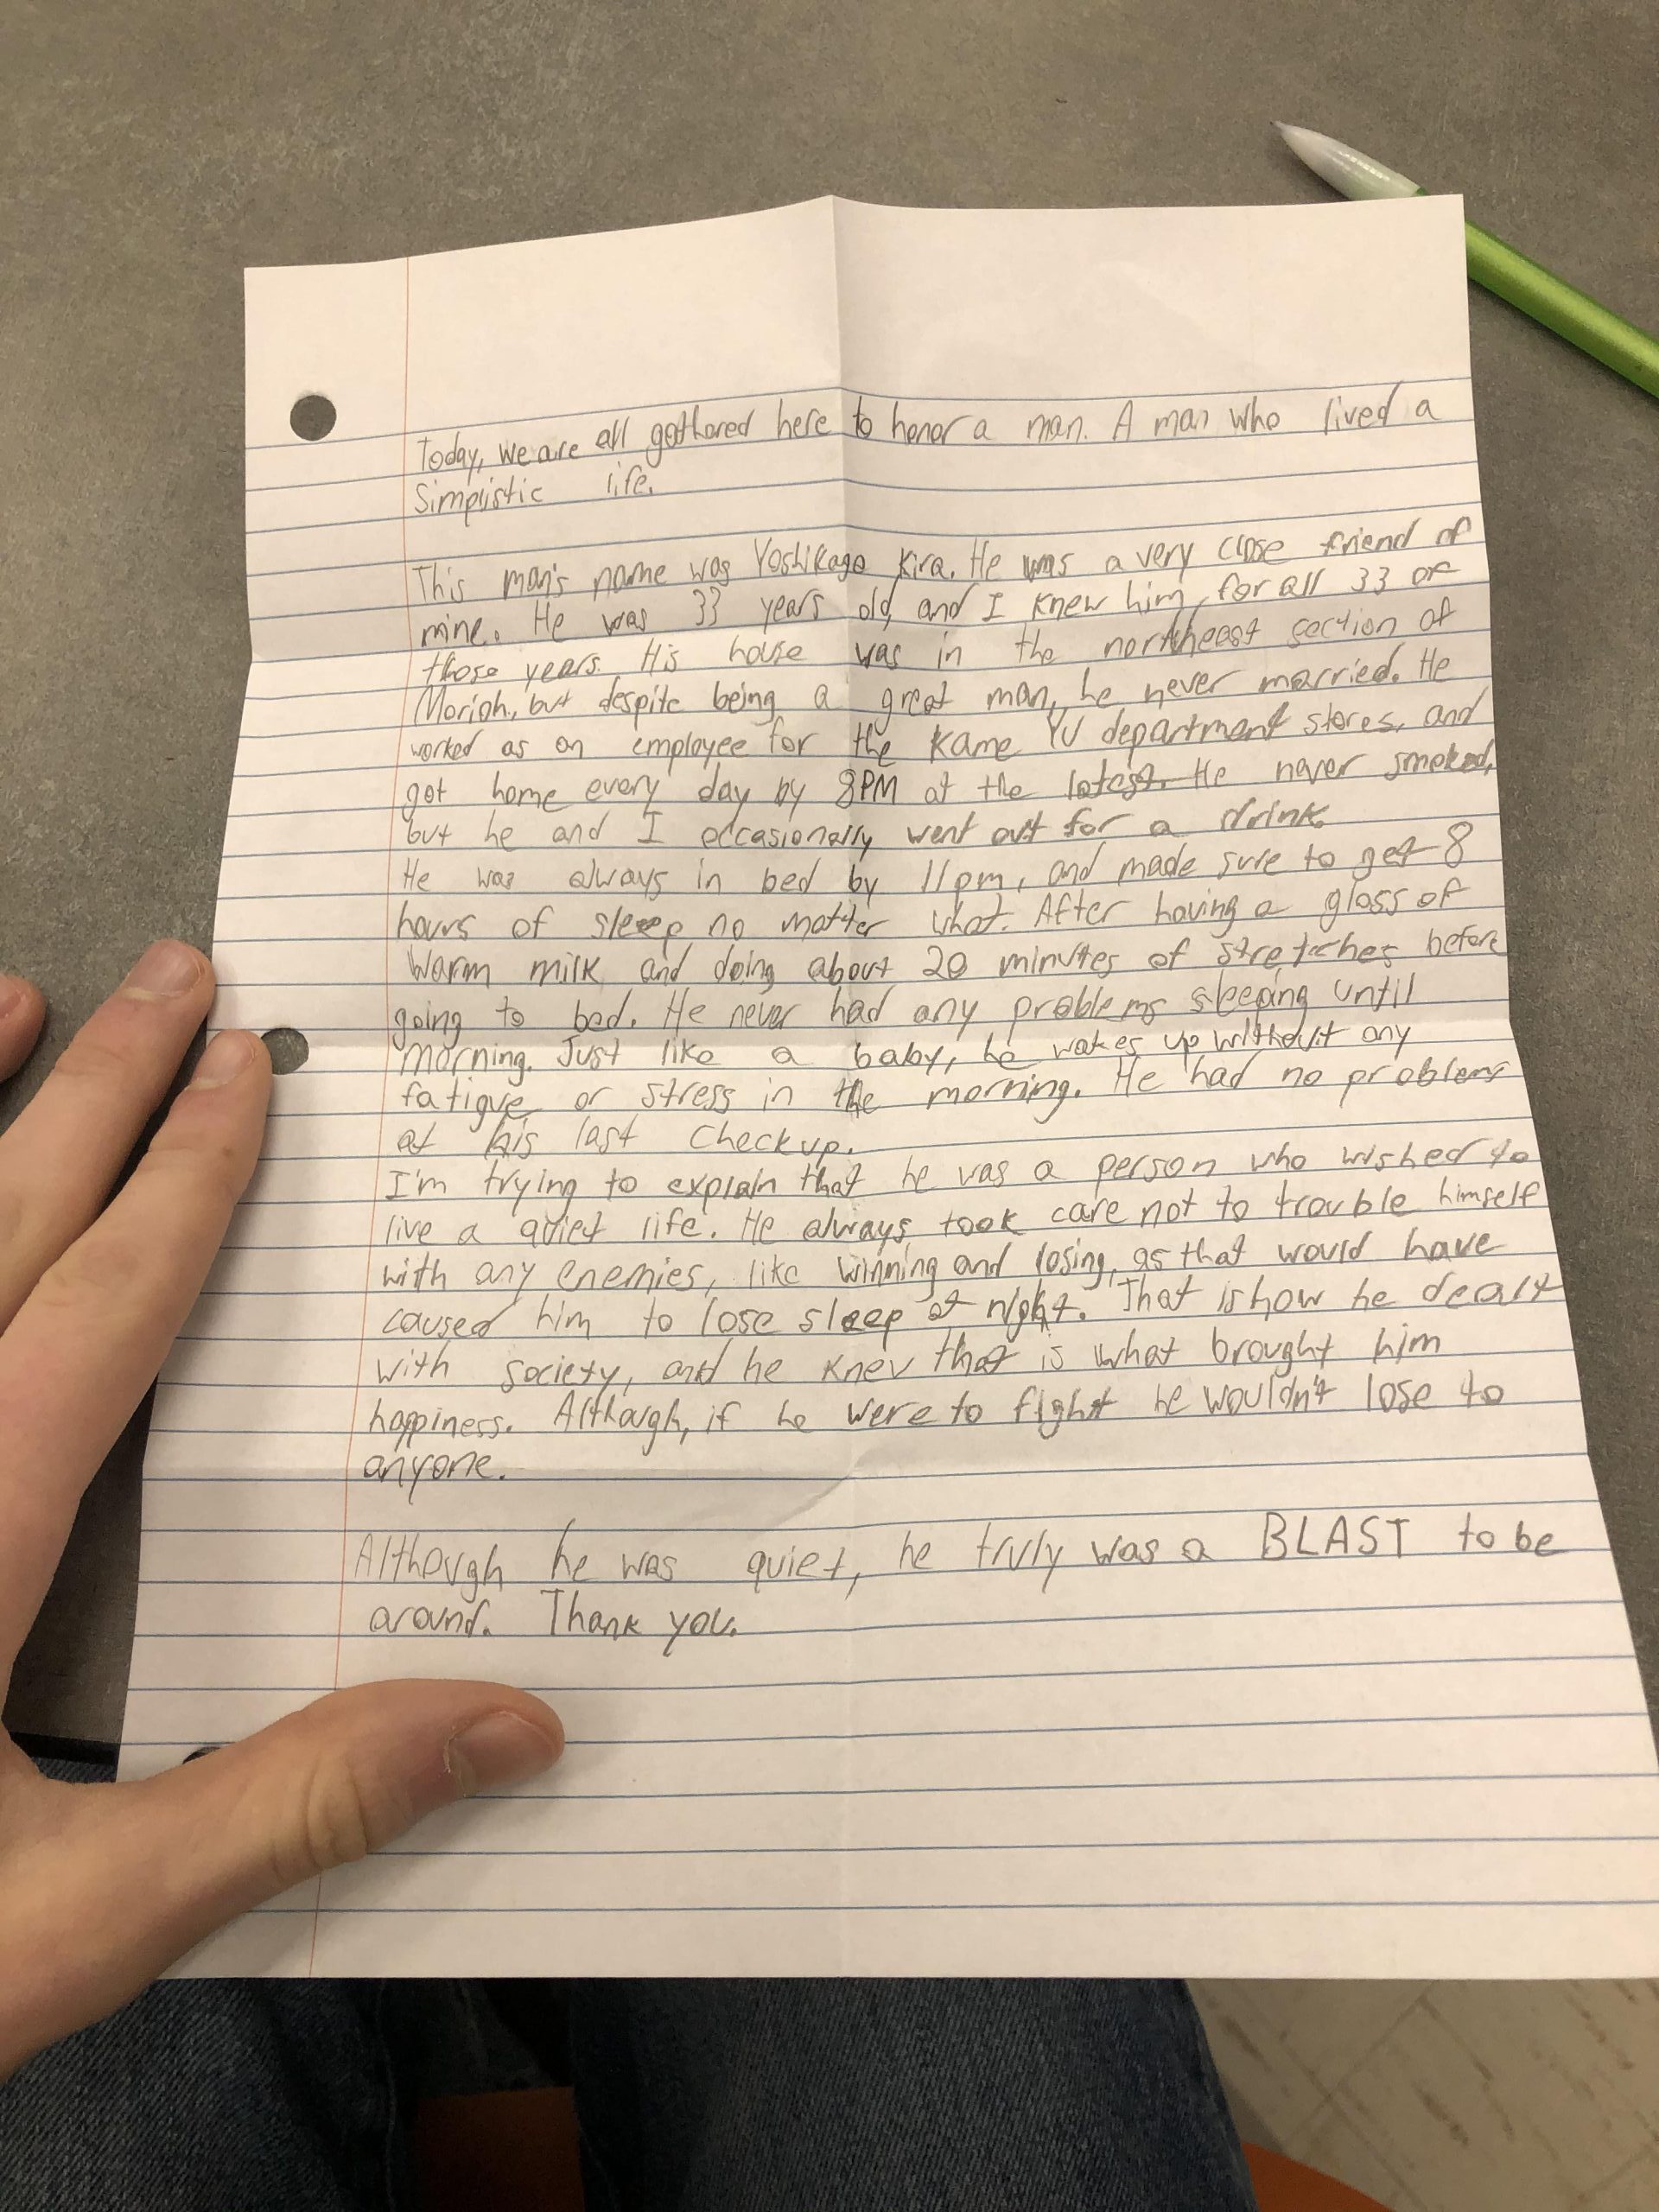 Today, we are all gathered here to honor a man. A man who lived a
Simplistic life.
This man's name was Yoshikage Kira. He was a very close friend of
mine. He was 33 years old, and I knew him, for all 33 of
those years. His house was in the northeast section of
Morioh, but despite being a great man, he never married. He
worked as an employee for the Kame Yu department stores, and
got home every day by 8PM at the latest. He never smoked,
but he and I occasionally went out for a drink.
He was always in bed by 11pm, and made sure to get 8
hours of sleep no matter what. After having a glass of
warm milk and doing about 20 minutes of stretches before
going to bed. He never had any problems sleeping until
morning. Just like a baby, he wakes up without any
fatigue or stress in the morning. He had no problems
at his last checkup.
I'm trying to explain that he was a person who wished to
live a quiet life. He always took care not to trouble himself
with any enemies, like winning and losing, as that would have
caused him to lose sleep at night. That is how he dealt
with society, and he knew that is what brought him
happiness. Although, if he were to fight he wouldn't lose to
anyone.
Although he was quiet, he truly was a BLAST to be
around. Thank you.